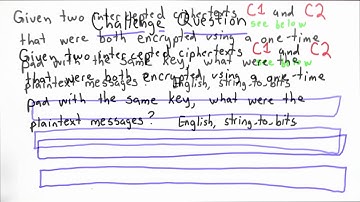 Challenge Question
Given two intercepted ciphertexts C1 and C2
see below
that were both encrypted using a one-time
Given two intercepted ciphertexts C1 and C2
see below
pad with the same key, what were the
that were both encrypted using a one-time
plaintext messages? English, string-to-bits
pad with the same key, what were the
plaintext messages? English, string-to-bits